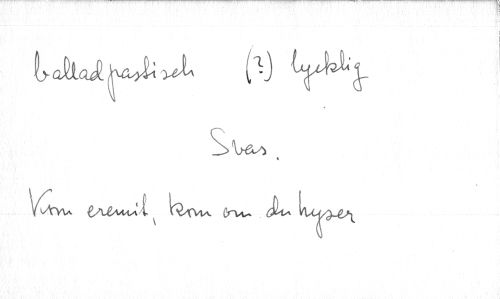 balladpastisch (?) lycklig
Svas.
Kom eremit, kom om du hyser